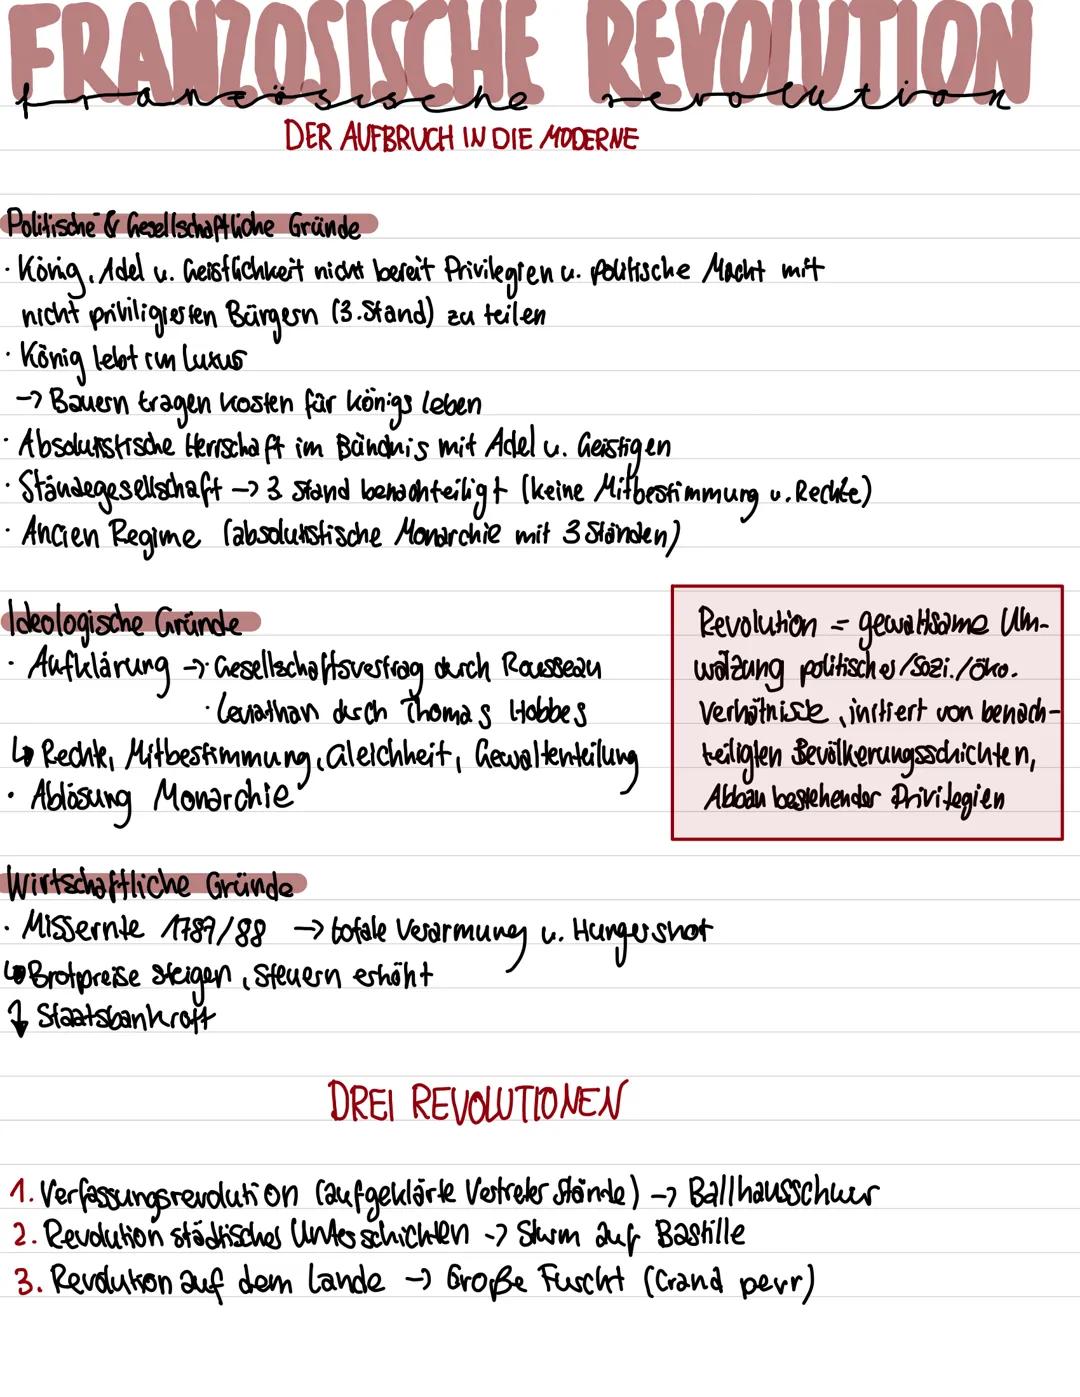 FRANZÖSISCHE REVOLUTION
französische revolution
DER AUFBRUCH IN DIE MODERNE
Politische & Gesellschaftliche Gründe
· König, Adel u. Geistlichkeit nicht bereit Privilegien u. politische Macht mit
nicht priviligierten Bürgern (3.Stand) zu teilen
· König lebt im Luxus
-> Bauern tragen kosten für Königs leben
· Absolutistische Herrschaft im Bündnis mit Adel u. Geistigen
· Ständegesellschaft -> 3 Stand benachteiligt (keine Mitbestimmung u. Rechte)
· Ancien Regime (absolutistische Monarchie mit 3 Ständen)
Ideologische Gründe
· Aufklärung -> · Gesellschaftsvertrag durch Rousseau
· Leviathan durch Thomas Hobbes
↳ Rechte, Mitbestimmung, Gleichheit, Gewaltenteilung
· Ablösung Monarchie
Revolution = gewaltsame Um-
wälzung politischer/Sozi./öko.
Verhältnisse, initiert von benach-
teiligten Bevölkerungsschichten,
Abbau bestehender Privilegien
Wirtschaftliche Gründe
· Missernte 1787/88 -> totale Verarmung u. Hungersnot
↳ Brotpreise steigen, Steuern erhöht
↓ Staatsbankrott
DREI REVOLUTIONEN
1. Verfassungsrevolution (aufgeklärte Vertreter Stände) -> Ballhausschwur
2. Revolution städtischer Unterschichten -> Sturm auf Bastille
3. Revolution auf dem Lande -> Große Furcht (Grand peur)